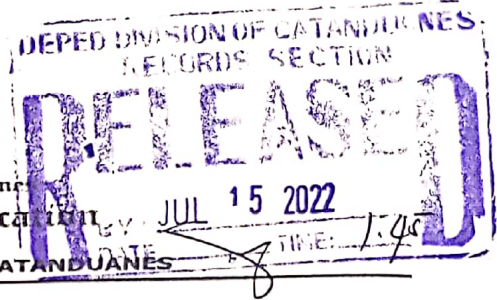 DEPED DIVISION OF CATANDUANES
RECORDS SECTION
RELEASED
BY
JUL 15 2022
DATE
TIME: 1:45
CATANDUANES